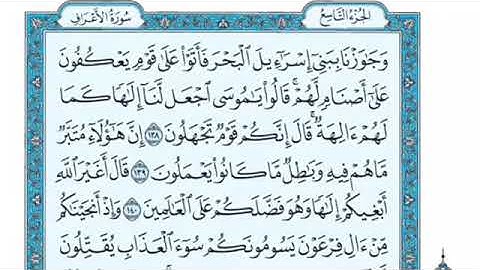 الجزء التاسع
سورة الأعراف
وَجَٰوَزْنَا بِبَنِىٓ إِسْرَٰٓءِيلَ ٱلْبَحْرَ فَأَتَوْا۟ عَلَىٰ قَوْمٍ يَعْكُفُونَ
عَلَىٰٓ أَصْنَامٍ لَّهُمْ ۚ قَالُوا۟ يَٰمُوسَى ٱجْعَل لَّنَآ إِلَٰهًا كَمَا
لَهُمْ ءَالِهَةٌ ۚ قَالَ إِنَّكُمْ قَوْمٌ تَجْهَلُونَ ١٣٨ إِنَّ هَٰٓؤُلَآءِ مُتَبَّرٌ
مَّا هُمْ فِيهِ وَبَٰطِلٌ مَّا كَانُوا۟ يَعْمَلُونَ ١٣٩ قَالَ أَغَيْرَ ٱللَّهِ
أَبْغِيكُمْ إِلَٰهًا وَهُوَ فَضَّلَكُمْ عَلَى ٱلْعَٰلَمِينَ ١٤٠ وَإِذْ أَنجَيْنَٰكُم
مِّنْ ءَالِ فِرْعَوْنَ يَسُومُونَكُمْ سُوٓءَ ٱلْعَذَابِ يُقَتِّلُونَ